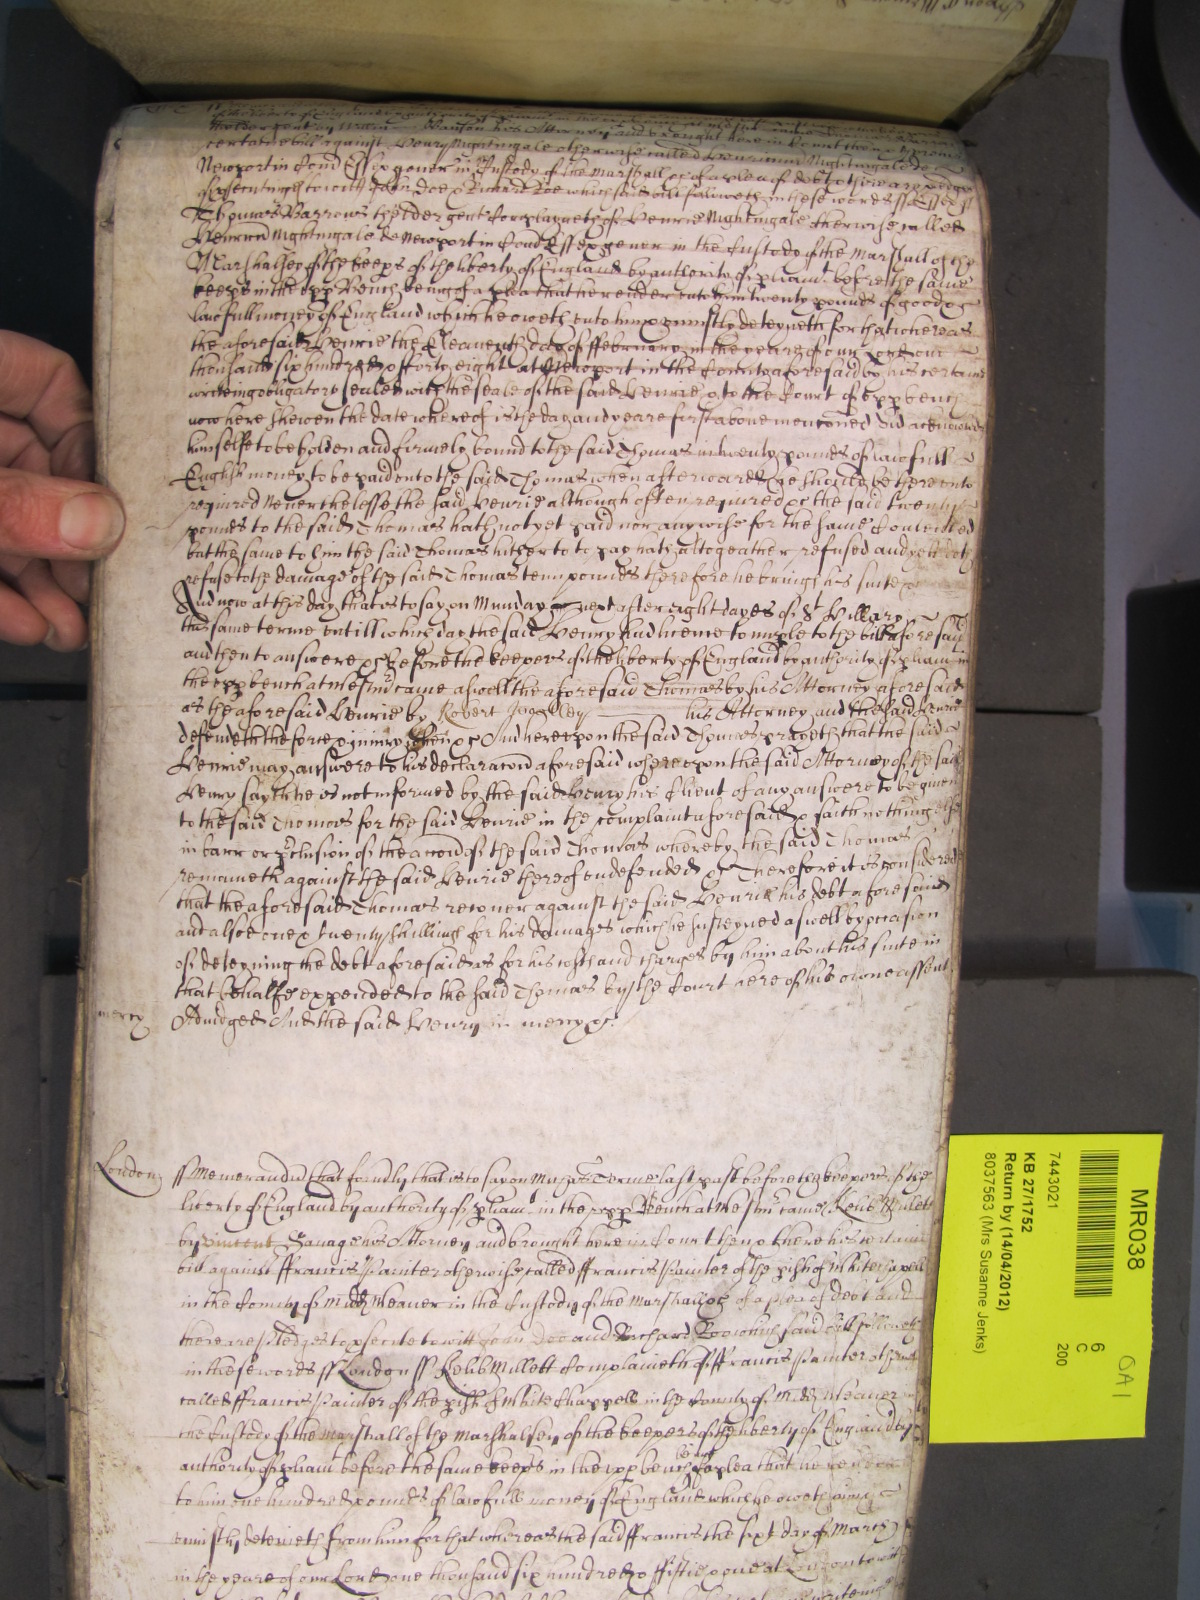 certaine bill against Henry Nightingale otherwise called Henricum Nightingale de
Newport in Com Essex gener in Custody of the Marshall &c of a plea of debt & there are pledges
of prosecuting to witt John Doe & Richard Roe which said bill followeth in these words ss Essex ss
Thomas Barrows the elder gent Complayneth of Henrie Nightingale otherwise called
Henricu Nightingale de Newport in Com Essex gener in the Custody of the Marshall of the
Marshalsey of the keeps of the liberty of England by authority of pliamt before the same
keeps in the upp Bench being of a plea that he render unto him twenty pounds of good &
lawfull money of England which he oweth unto him & uniustly deteyneth for that whereas
the aforesaid Henrie the Eleaventh day of ffebruary in the yeare of our Lord one
thousand six hundred & fforty eight at Newport in the County aforesaid by his certaine
writeing obligatory sealed with the seale of the said Henrie & to the Court of ye upp bench
now here shewen the date whereof is the day and yeare first above mentioned did acknowledg
himselfe to be holden and firmely bound to the said Thomas in twenty pounds of lawfull
English money to be paid unto the said Thomas when afterwards he should be thereunto
required Neverthelesse the said Henrie although often required &c the said twenty
pounds to the said Thomas hath not yet paid nor anywise for the same Contented
but the same to him the said Thomas hitherto to pay hath altogeather refused and yet doth
refuse to the damage of the said Thomas tenn pounds therefore he brings his suite &c
And now at this day that is to say on Munday next after eight dayes of St Hillary
this same terme untill which day the said Henry had licence to imple to the bill aforesaid
and then to answere &c before the keepers of the liberty of England by authority of pliam in
the upp bench at Westmr came aswell the aforesaid Thomas by his Attorney aforesaid
as the aforesaid Henrie by Robert his Attorney and the said Henrie
defendeth the force & iniury when &c And hereupon the said Thomas prayeth that the said
Henrie may answere to his declaracon aforesaid whereupon the said Attorney of the said
Henry sayth he is not informed by the said Henry his Client of any answere to be given
to the said Thomas for the said Henrie in the complaint aforesaid & saith nothing else
in barr or pclusion of the accon of the said Thomas whereby the said Thomas
remaineth against the said Henrie thereof undefended &c Therefore it is considered
that the aforesaid Thomas recover against the said Henrie his debt aforesaid
and alsoe twenty shillings for his damages which he susteyned aswell by occasion
of deteyning the debt aforesaid as for his costs and charges by him about his suite in
that behalfe expended to the said Thomas by the Court here of his owne assent
mercy Adiudged And the said Henry in mercy &c
London ss Memorandu that formly that is to say in Terme last past before the keepers of the
liberty of England by authority of pliam in the upp Bench at Westmr came Kelib Millett
by Vincent Savage his Attorney and brought here in Court then & there his certaine
bill against ffrancis Painter otherwise called ffrancis Painter of the pish of white chapell
in the County of Midd Weaver in the Custody of the Marshall &c of a plea of debt and
there are pledges to psecute to witt John Doo and Richard Roo which said bill followeth
in these words ss London ss Kelib Millett Complaineth of ffrancis Painter otherwise
called ffrancis Painter of the pish of white Chappell in the County of Midd weaver in
the Custody of the Marshall of the Marshalsey of the keepers of the liberty of England by
authority of pliamt before the same keeps in the upp bench being of a plea that he render
to him one hundred pounds of lawfull money of England which he oweth him &
uniustly deteineth from him for that whereas the said ffrancis the sixt day of March
in the yeare of our Lord one thousand six hundred & ffiftie one at London to witt
MR038
6
C
200
OA1
7443021
KB 27/1752
Return by (14/04/2012)
8037563 (Mrs Susanne Jenks)